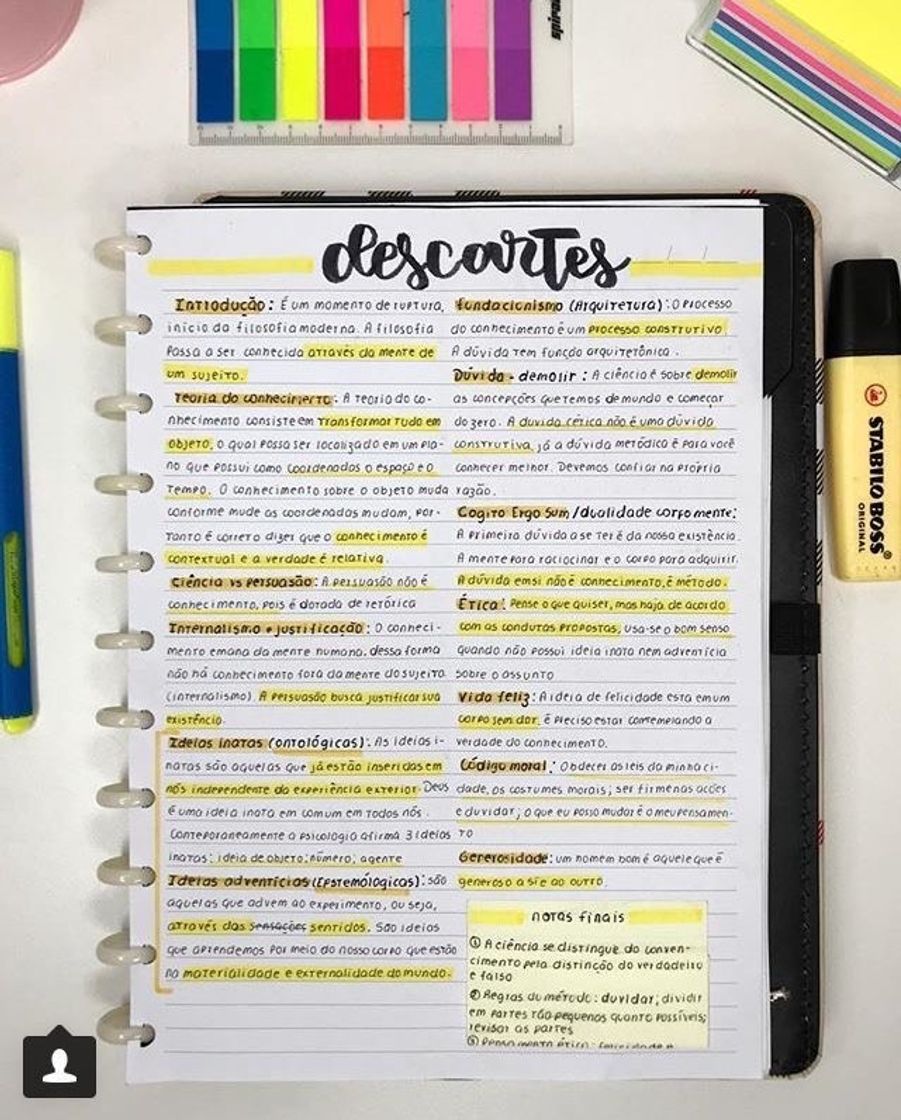 spiral
descartes
Introdução: É um momento de ruptura,
início da filosofia moderna. A filosofia
passa a ser conhecida através da mente de
um sujeito.
Teoria do conhecimento: A teoria do co-
nhecimento consiste em transformar tudo em
objeto, o qual possa ser localizado em um pla-
no que possui como coordenadas o espaço e o
tempo. O conhecimento sobre o objeto muda
conforme mude as coordenadas mudam, por-
tanto é correto dizer que o conhecimento é
contextual e a verdade é relativa.
Ciência vs persuasão: A persuasão não é
conhecimento, pois é dotada de retórica
Internalismo e justificação: O conheci-
mento emana da mente humana, dessa forma
não há conhecimento fora da mente do sujeito
(internalismo). A persuasão busca justificar sua
existência.
Ideias inatas (ontológicas): As ideias i-
natas são aquelas que já estão inseridas em
nós independente da experiência exterior. Deus
é uma ideia inata em comum em todos nós.
Conteporaneamente a psicologia afirma 3 ideias
inatas: ideia de objeto; número; agente
Ideias adventícias (Epstemólogicas): são
aquelas que advem ao experimento, ou seja,
através das sensações sentidos. São ideias
que aprendemos por meio do nosso corpo que estão
na materialidade e externalidade do mundo.
fundacionismo (Arquitetura): O processo
do conhecimento é um processo construtivo.
A dúvida tem função arquitetônica.
Dúvida - demolir: A ciência é sobre demolir
as concepções que temos de mundo e começar
do zero. A duvida cética não é uma dúvida
construtiva, já a dúvida metódica é para você
conhecer melhor. Devemos confiar na própria
razão.
Cogito Ergo Sum/dualidade corpo mente:
A primeira dúvida a se ter é da nossa existência.
A mente para raciocinar e o corpo para adquirir.
A dúvida em si não é conhecimento, é método.
Ética: Pense o que quiser, mas haja de acordo
com as condutas propostas, usa-se o bom senso
quando não possui ideia inata nem adventícia
sobre o assunto
Vida feliz: A ideia de felicidade esta em um
corpo sem dor, é preciso estar contemplando a
verdade do conhecimento.
Código moral: Obdecer as leis da minha ci-
dade, os costumes morais; ser firme nas ações
e duvidar; o que eu posso mudar é o meu pensamen-
to
Generosidade: um homem bom é aquele que é
generoso a si e ao outro.
notas finais
① A ciência se distingue do conven-
cimento pela distinção do verdadeiro
e falso
② Regras do método: duvidar; dividir
em partes tão pequenas quanto possíveis;
revisar as partes
③ Pensamento ético: felicidade é
STABILO BOSS
ORIGINAL